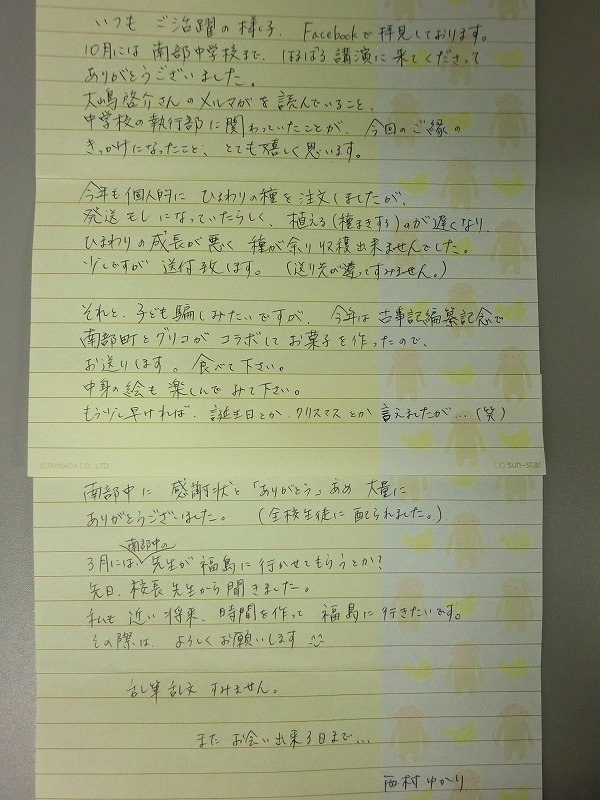 いつも ご活躍の様子、Facebookで拝見しております。
10月には 南部中学校まで、はるばる講演に来てくださって
ありがとうございました。
大嶋啓介さんのメルマガを読んでいること、
中学校の執行部に関わっていたことが、今回のご縁の
きっかけになったこと、とても嬉しく思います。
今年も個人的に ひまわりの種を注文しましたが、
発送モレになっていたらしく、植える(種まきする)のが遅くなり、
ひまわりの成長が悪く 種が余り収穫出来ませんでした。
少しですが 送付致します。(送り先が違ってすみません。)
それと、子ども騙しみたいですが、今年は古事記編纂記念で
南部町とグリコが コラボして お菓子を作ったので、
お送りします。食べて下さい。
中身の絵も 楽しんでみて下さい。
もう少し早ければ、誕生日とか クリスマスとか 言えましたが…(笑)
©SHINADA CO., LTD.
sun-star
南部中に 感謝状と「ありがとう」あめ 大量に
ありがとうございました。(全校生徒に配られました。)
南部中の
3月には、先生が 福島に行かせてもらうとか?
先日、校長先生から聞きました。
私も 近い将来、時間を作って 福島に行きたいです。
その際は よろしくお願いします
乱筆乱文 すみません。
また お会い出来る日まで…
西村ゆかり